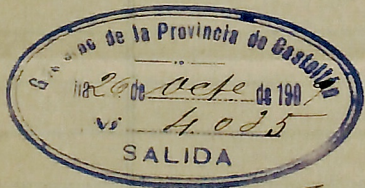 de la Provincia de Castellón
26 de Octe de 190
4035
SALIDA